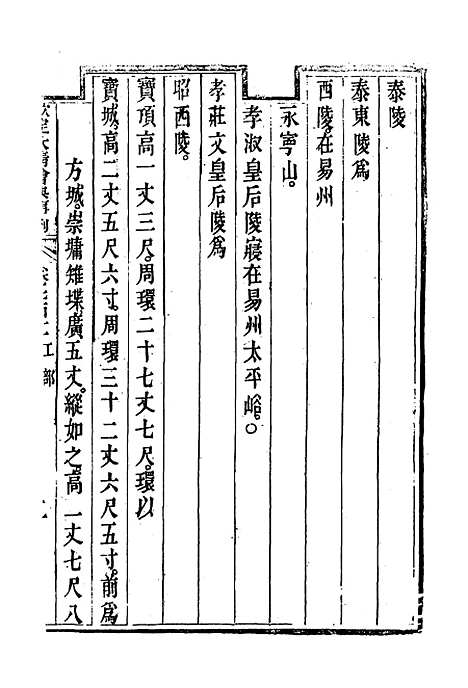 泰陵
泰東陵爲
西陵。在易州
永寧山。
孝淑皇后陵寢在易州太平峪。○
孝莊文皇后陵爲
昭西陵。
寶頂高一丈三尺。周環二十七丈七尺。環以
寶城。高二丈五尺六寸。周環三十二丈六尺五寸。前爲
方城。崇墉雉堞。廣五丈。縱如之。高一丈七尺八
大清會典事例
工部